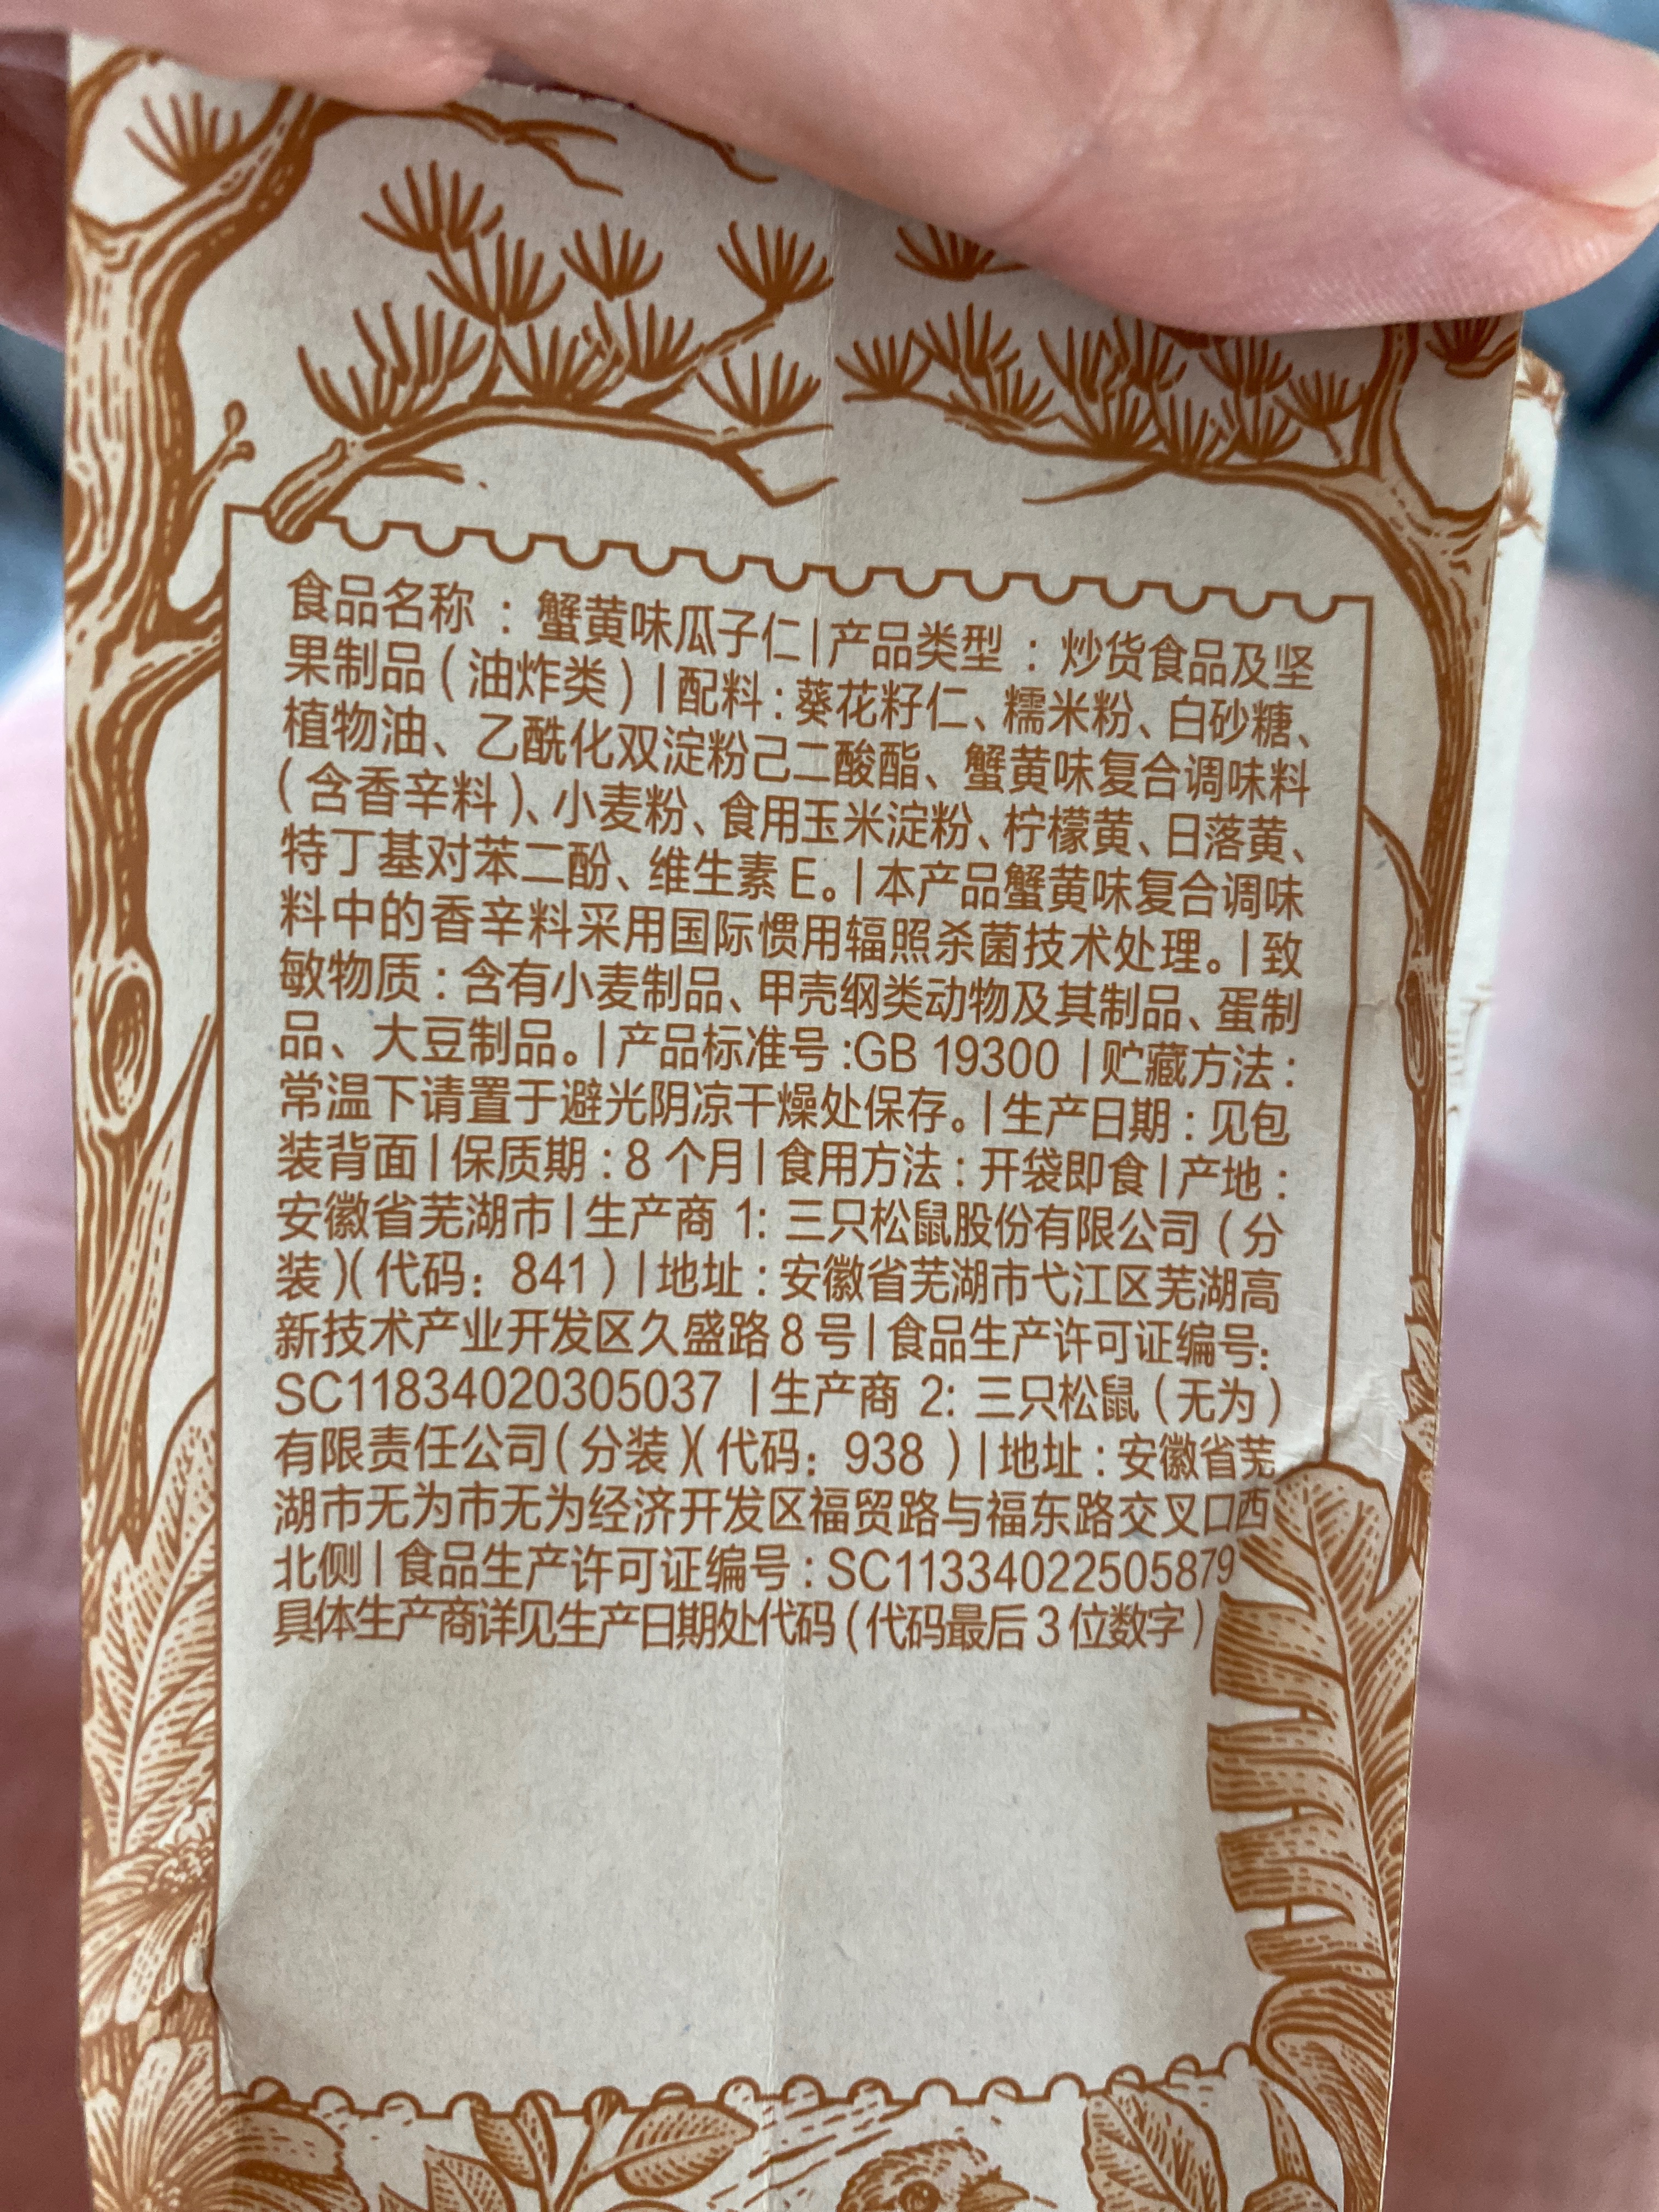 食品名称：蟹黄味瓜子仁|产品类型：炒货食品及坚
果制品(油炸类)|配料:葵花籽仁、糯米粉、白砂糖、
植物油、乙酰化双淀粉己二酸酯、蟹黄味复合调味料
(含香辛料)、小麦粉、食用玉米淀粉、柠檬黄、日落黄、
特丁基对苯二酚、维生素E。|本产品蟹黄味复合调味
料中的香辛料采用国际惯用辐照杀菌技术处理。|致
敏物质:含有小麦制品、甲壳纲类动物及其制品、蛋制
品、大豆制品。|产品标准号:GB 19300 |贮藏方法:
常温下请置于避光阴凉干燥处保存。|生产日期:见包
装背面|保质期:8个月|食用方法:开袋即食|产地:
安徽省芜湖市|生产商 1: 三只松鼠股份有限公司(分
装)(代码: 841)|地址:安徽省芜湖市弋江区芜湖高
新技术产业开发区久盛路8号|食品生产许可证编号:
SC11834020305037 |生产商 2: 三只松鼠(无为)
有限责任公司(分装)(代码: 938 )|地址:安徽省芜
湖市无为市无为经济开发区福贸路与福东路交叉口西
北侧|食品生产许可证编号:SC11334022505879
具体生产商详见生产日期处代码(代码最后3位数字)